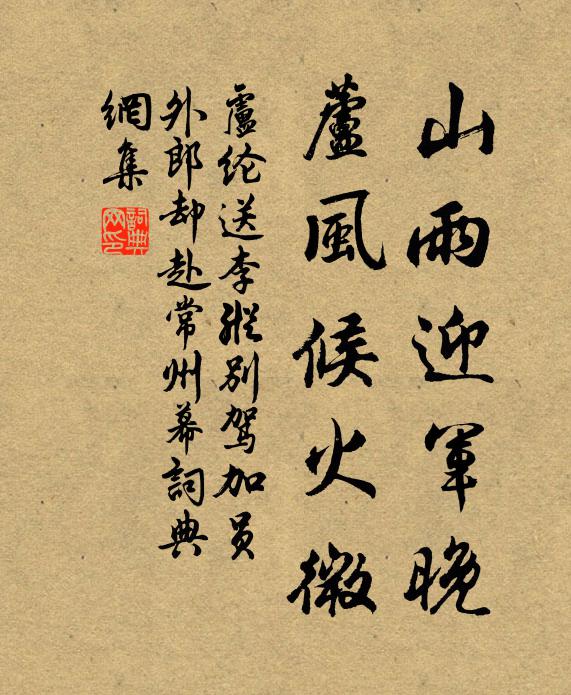 山雨迎軍晚
蘆風候火微
盧纶送李縱别駕加员
外郎却赴常州幕詞典
網集
詞典
网印